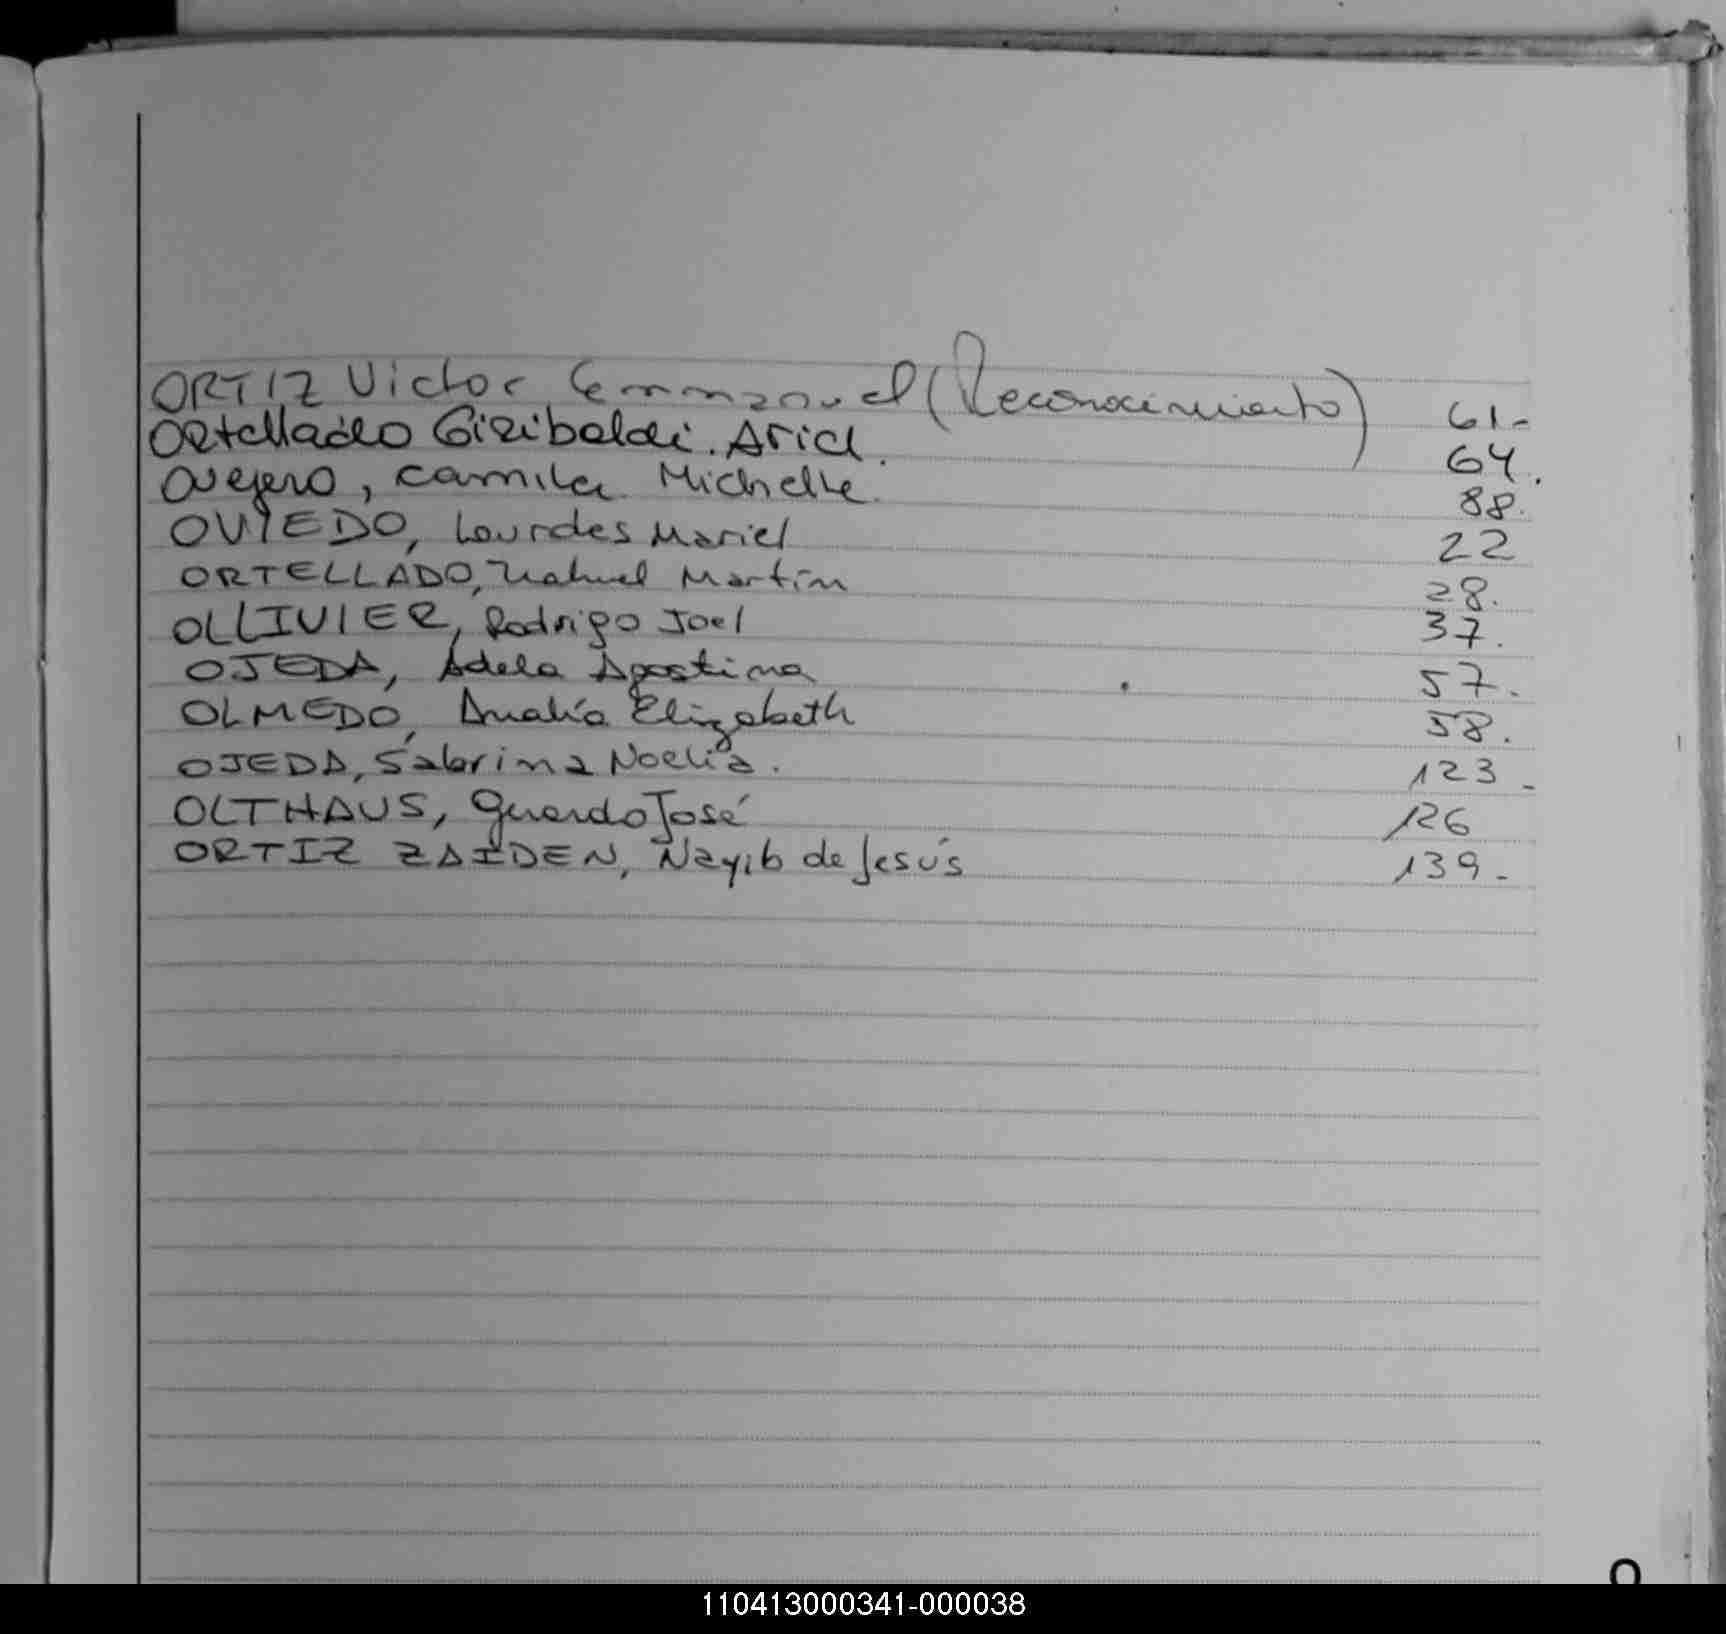 ORTIZ Victor Emmanuel (Reconocimiento) 61-
ORtellado Giribaldi. Ariel. 64.
Ovejero, camila Michelle. 88.
OVIEDO, Lourdes Mariel 22
ORTELLADO, Nahuel Martín 28.
OLLIVIER, Rodrigo Joel 37.
OJEDA, Adela Agostina 57.
OLMEDO, Analía Elizabeth 58.
OJEDA, Sabrina Noelia. 123-
OLTHAUS, José 126
ORTIZ ZAIDEN, Nayib de Jesús 139-
O
110413000341-000038